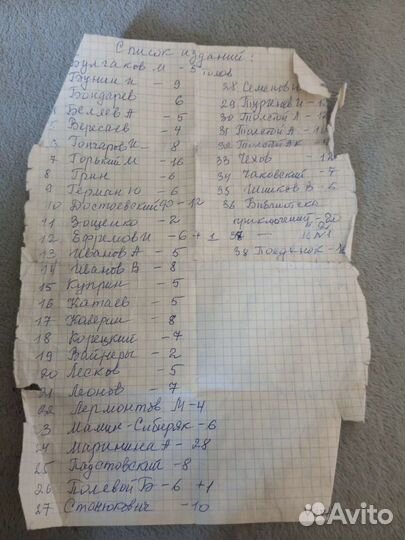 Список изданий:
Булгаков М - 5 томов
Бунин И 9
Бондарев 6
Беляев А - 5
5 Вересаев 4
Гончаров И - 8
7 Горький М - 16
8 Грин - 6
9 Герман Ю - 6
10 Достоевский Ф - 12
11 Зощенко - 2
12 Ефремов И - 6 + 1
13 Иванов А - 5
14 Иванов В - 8
15 Куприн - 5
16 Катаев - 5
17 Каверин - 8
18 Корецкий - 7
19 Вайнеры - 2
20 Лесков - 5
21 Леонов - 7
22 Лермонтов М - 4
3 Мамин-Сибиряк - 6
24 Маринина А - 28
25 Паустовский - 8
26 Полевой Б - 6 +1
27 Станюкович - 10
28 Семенов Ю
29 Тургенев И - 12
30 Толстой Л -
31 Толстой А -
32 Толстой АК - 4
33 Чехов - 12
34 Чаковский - 7
35 Шишков В - 6
36 Библиотека
приключений - 20
38 Поединок -
Avito